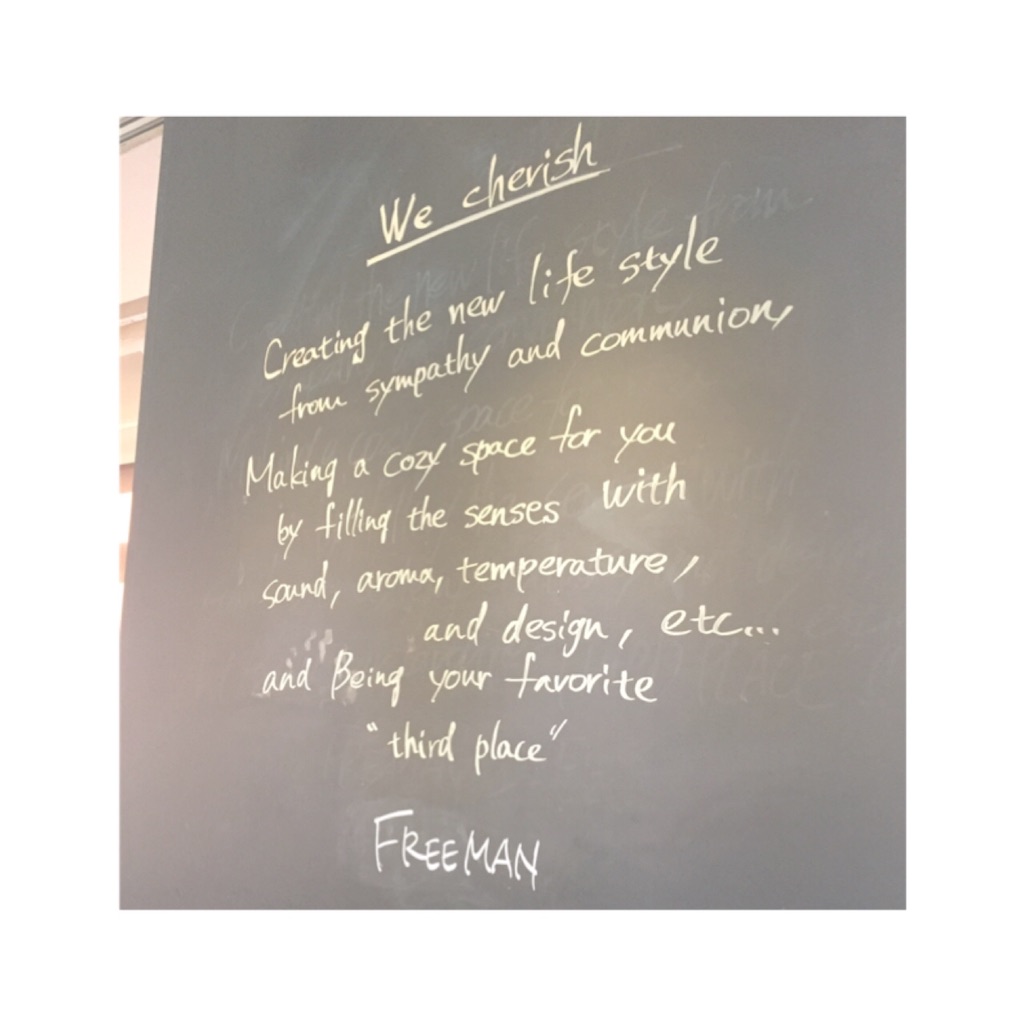 We cherish
Creating the new life style
from sympathy and communion,
Making a cozy space for you
by filling the senses with
sound, aroma, temperature,
and design, etc...
and Being your favorite
"third place"
FREEMAN